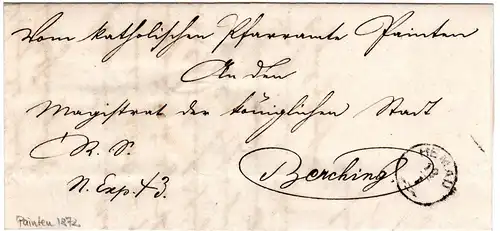 Vom katholischen Pfarramte Painten
An den
Magistrat der königlichen Stadt
R. S.
Berching.
HEMAU
N. Exp. 43.
Painten 1872